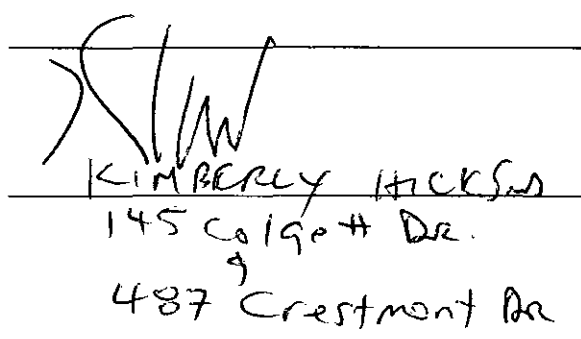 KIMBERLY HICKSON
145 Colgett Dr.
&
487 Crestmont Dr